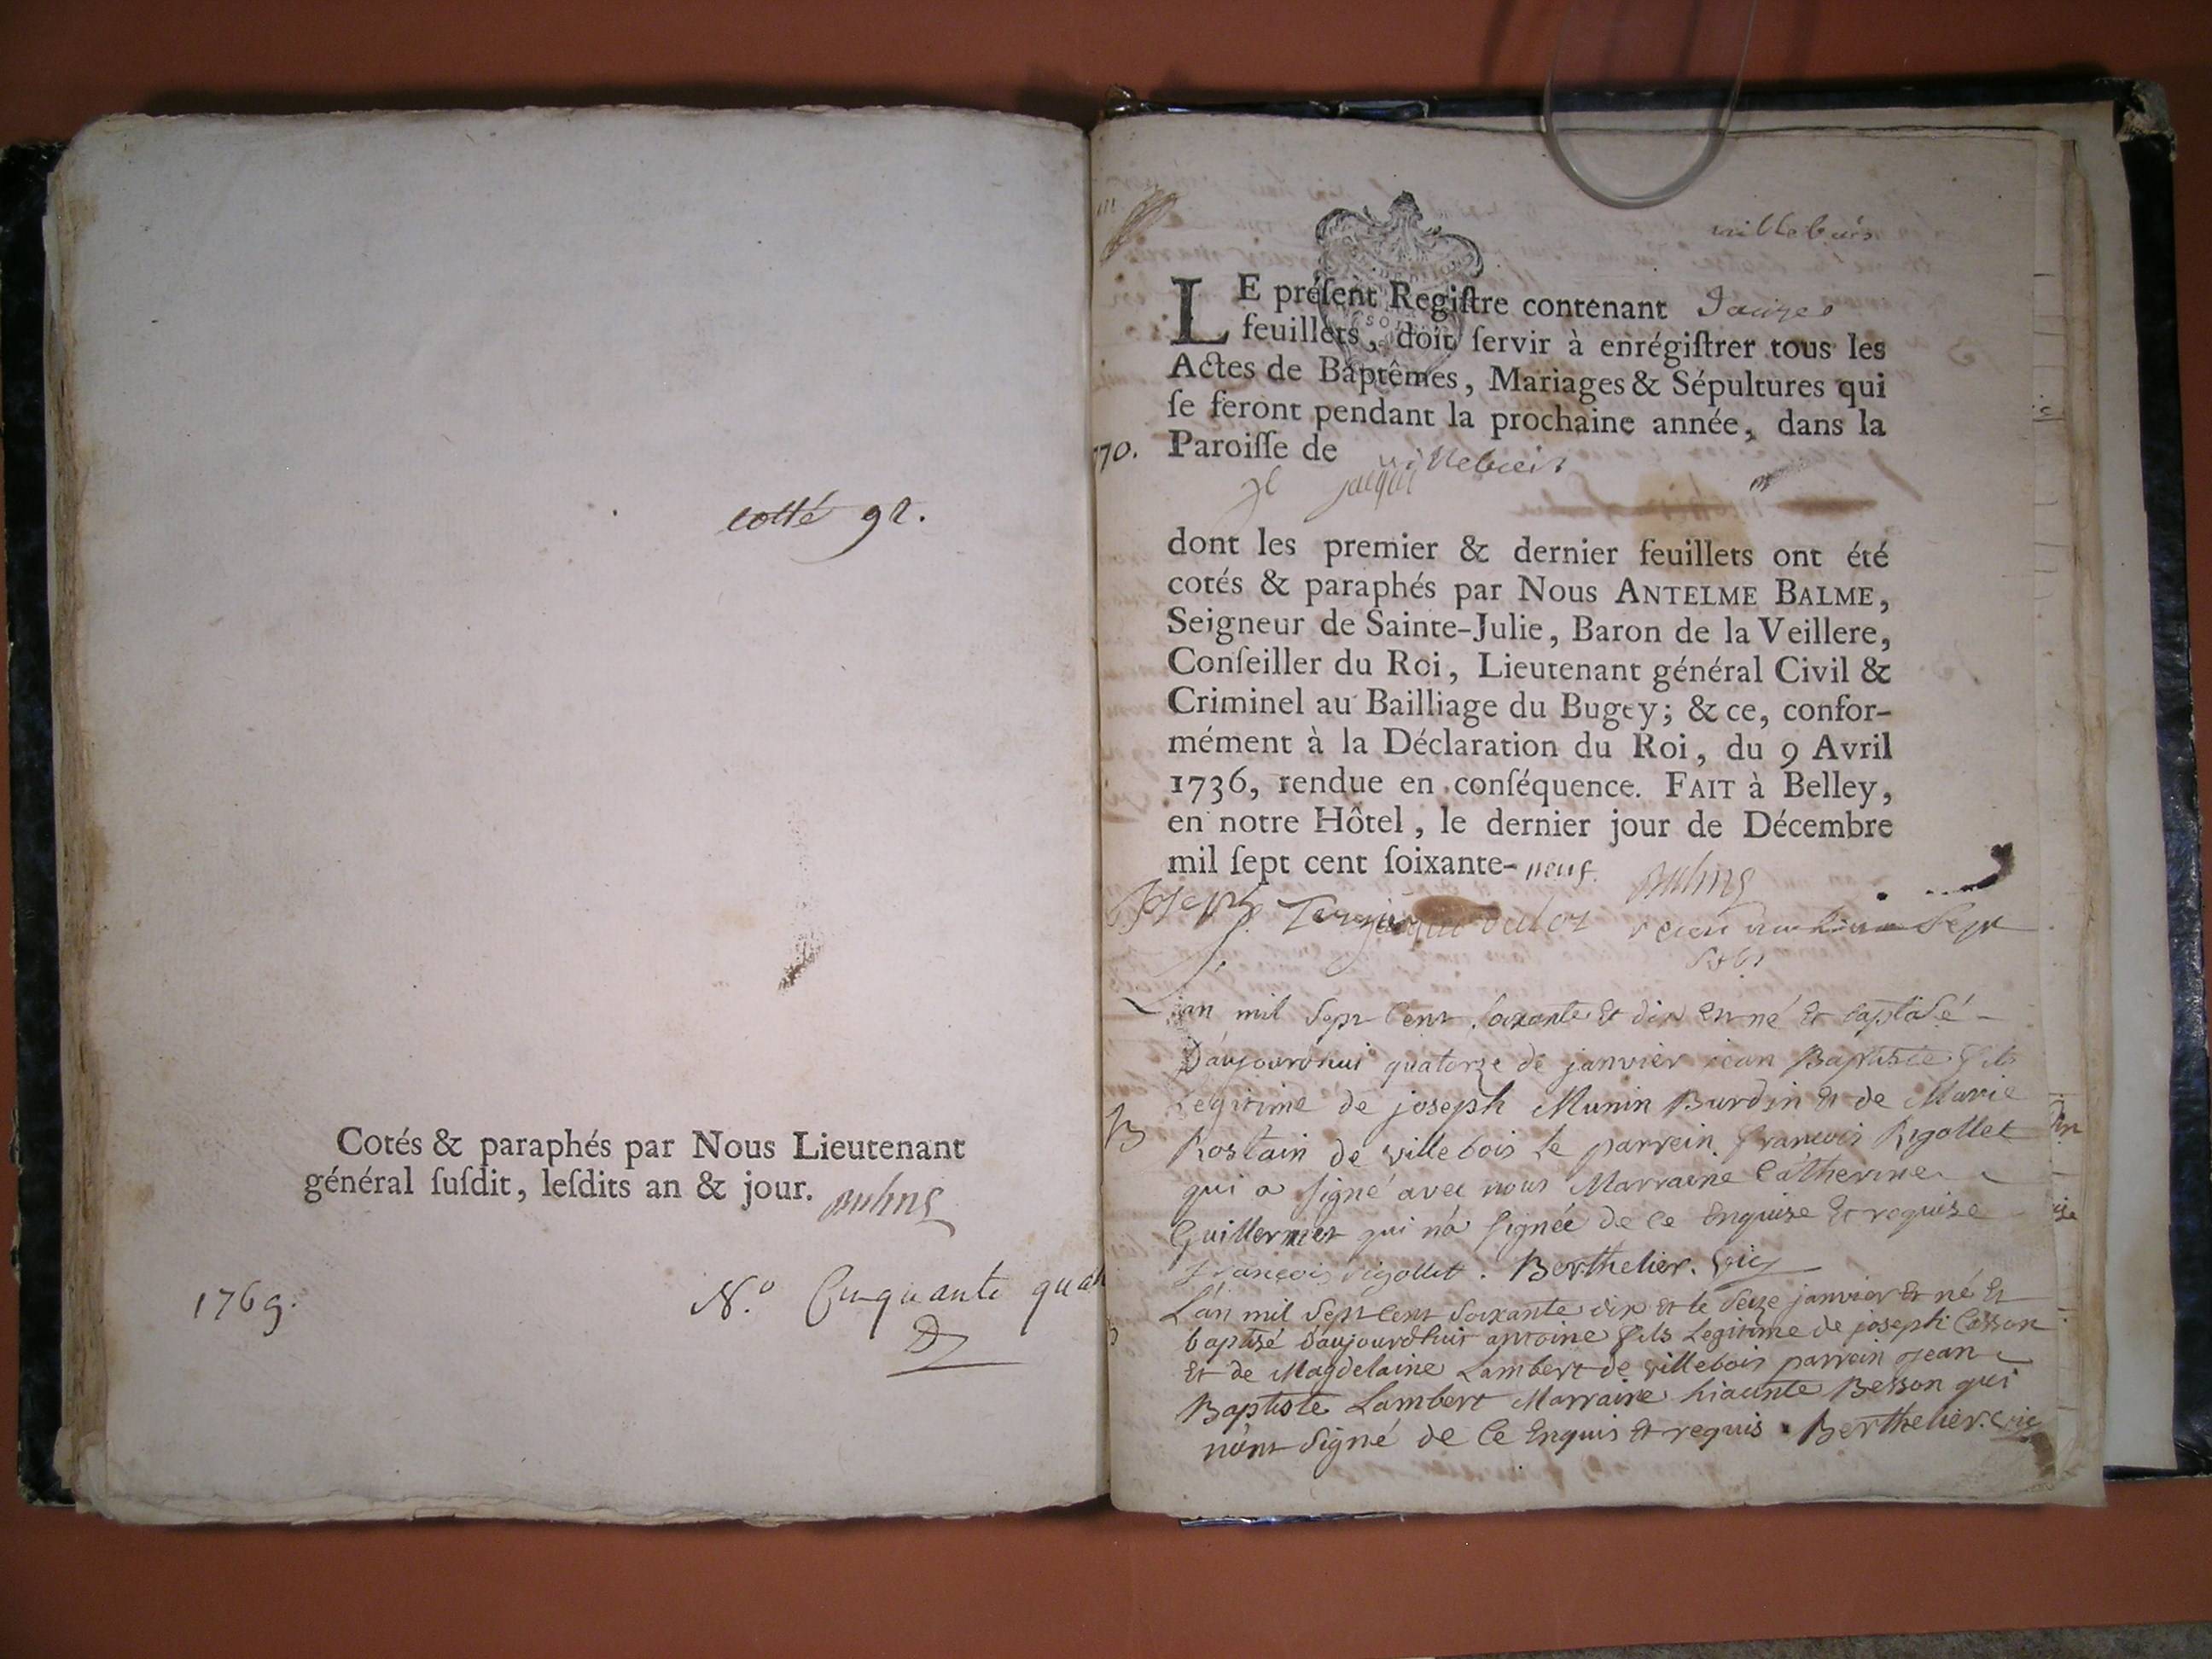 cotté 92.
Cotés & paraphés par Nous Lieutenant
général ſuſdit, leſdits an & jour.
1769.
N.o Cinquante quat
villebois
LE préſent Regiſtre contenant
feuillets, doit ſervir à enrégiſtrer tous les
Actes de Baptêmes, Mariages & Sépultures qui
ſe feront pendant la prochaine année, dans la
70. Paroiſſe de villebois
jacque
dont les premier & dernier feuillets ont été
cotés & paraphés par Nous ANTELME BALME,
Seigneur de Sainte-Julie, Baron de la Veillere,
Conſeiller du Roi, Lieutenant général Civil &
Criminel au Bailliage du Bugey; & ce, confor-
mément à la Déclaration du Roi, du 9 Avril
1736, rendue en conſéquence. FAIT à Belley,
en notre Hôtel, le dernier jour de Décembre
mil ſept cent ſoixante-neuf.
Joseph
L'an mil Sept Cent soixante et dix est né et baptisé
D'aujourdhui quatorze de janvier jean Baptiste fils
Legitime de joseph Munin Burdin et de Marie
B Rostain de villebois le parrein francois Rigollet
qui a signé avec nous Marraine Catherine
Guillermet qui n'a signée de ce enquise et requise
françois rigollet. Berthelier. vic
L'an mil Sept Cent Soixante dix et le Seize janvier est né et
baptisé d'aujourdhuit antoine fils Legitime de joseph Casson
et de Magdelaine Lambert de villebois parrein jean
Baptiste Lambert Marraine hiacinte Besson qui
n'ont Signé de Ce enquis et requis. Berthelier. vic